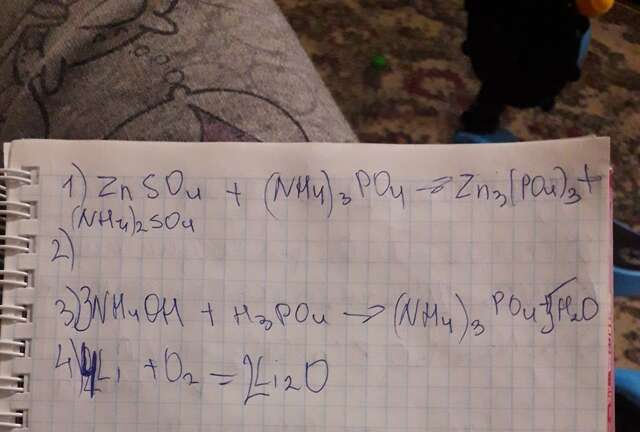 1) ZnSO4 + (NH4)3PO4 → Zn3(PO4)3+
(NH4)2SO4
2)
3) 3NH4OH + H3PO4 → (NH4)3PO4+3H2O
4) 4Li + O2 = 2Li2O